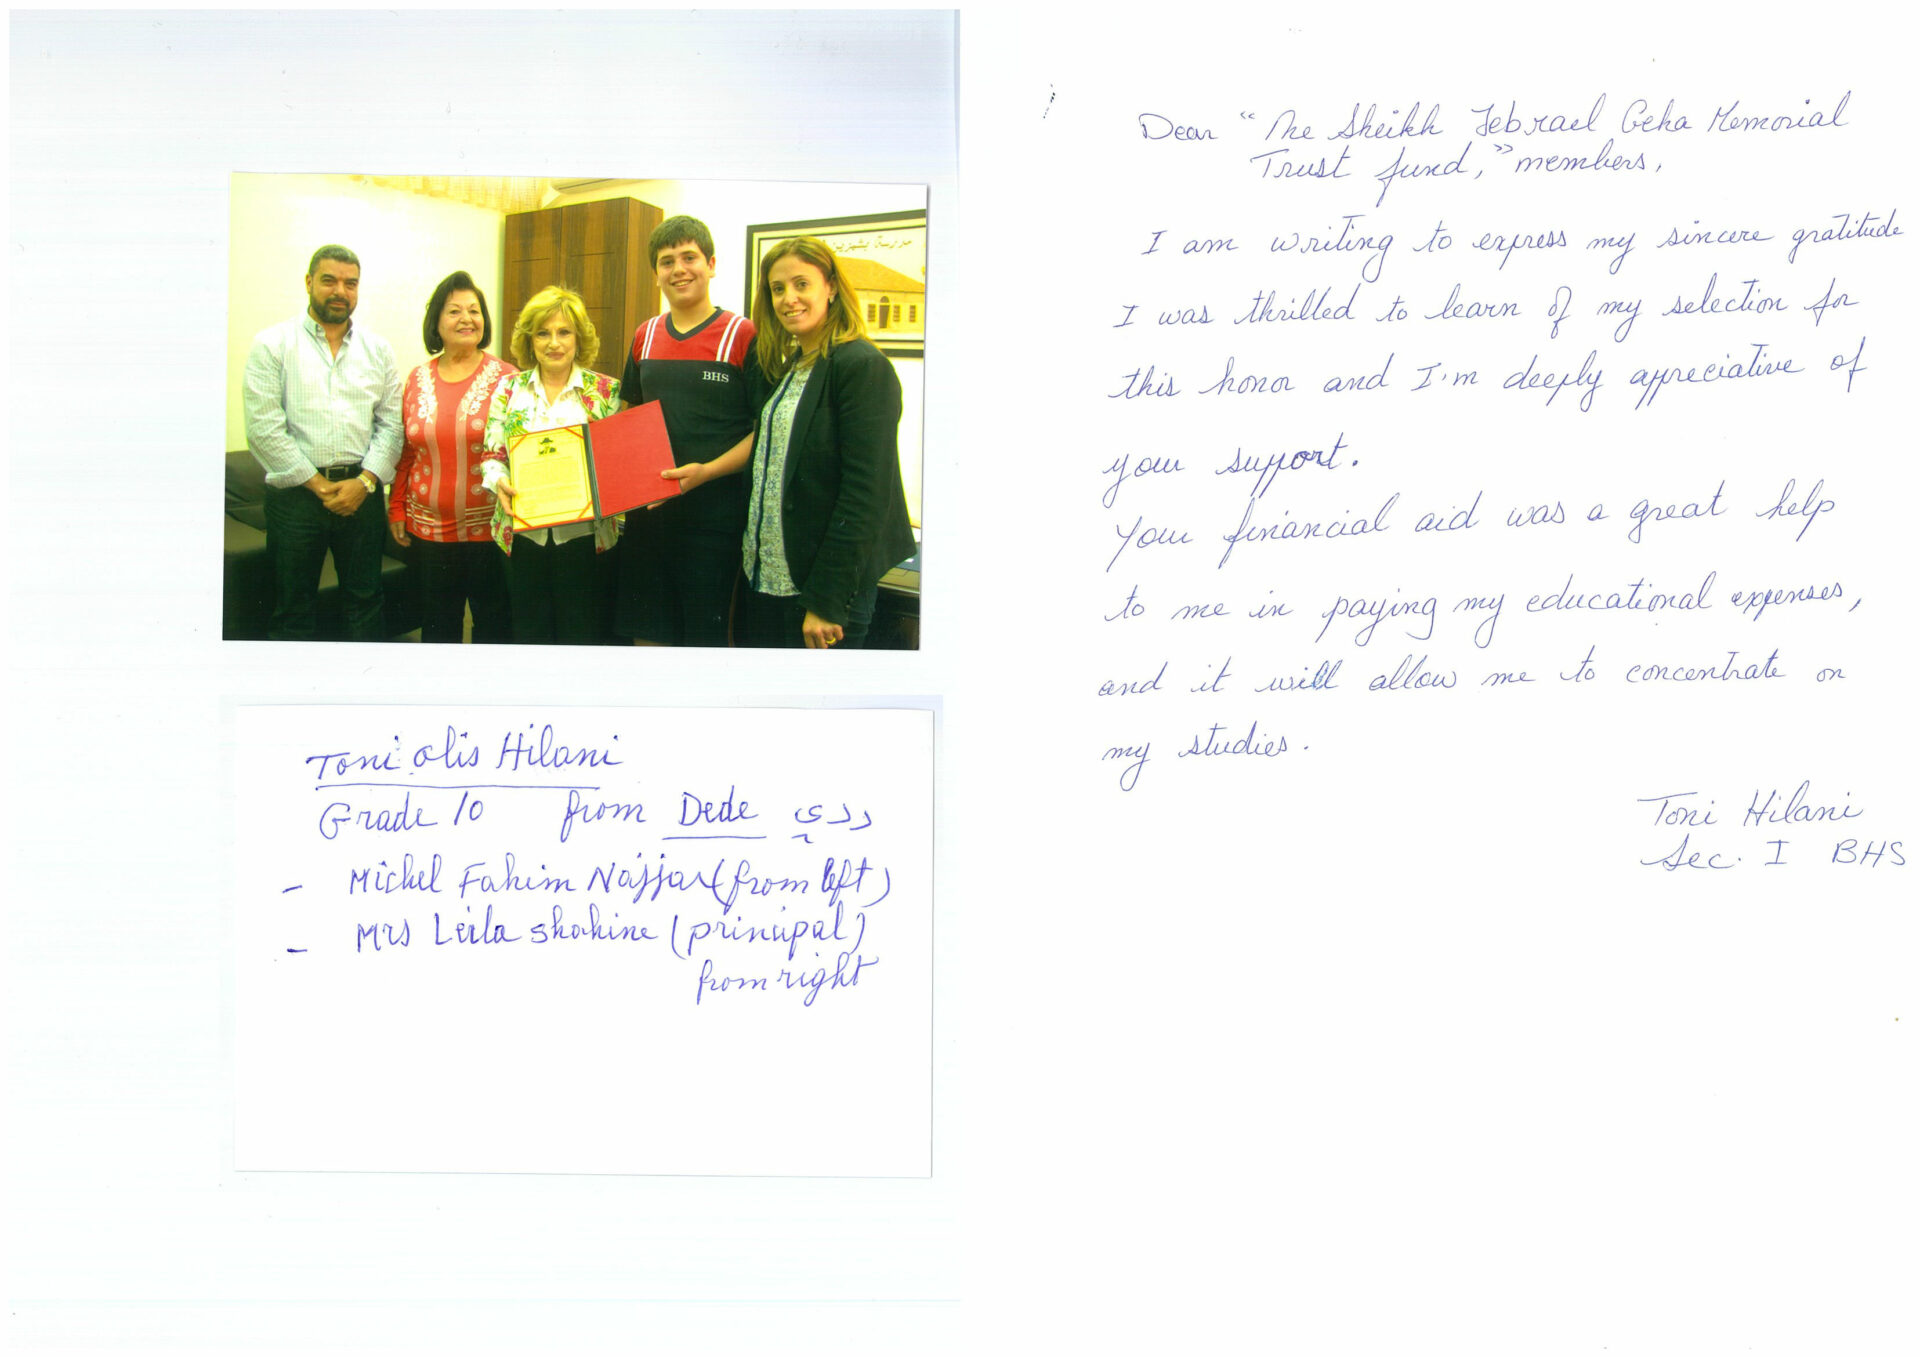 مدرسة بشمزين
BHS
Toni olis Hilani
Grade 10 from Dede ددي
- Michel Fahim Najjar (from left)
- Mrs Leila Shahine (principal)
from right
Dear "The Sheikh Jebrael Geha Memorial
Trust fund," members,
I am writing to express my sincere gratitude
I was thrilled to learn of my selection for
this honor and I'm deeply appreciative of
your support.
Your financial aid was a great help
to me in paying my educational expenses,
and it will allow me to concentrate on
my studies.
Toni Hilani
Sec. I BHS